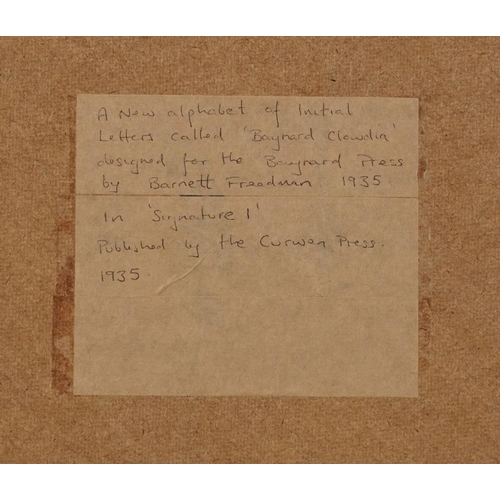 A New alphabet of Initial
Letters called 'Baynard Claudin'
designed for the Baynard Press
by Barnett Freedman 1935
In 'Signature 1'
Published by the Curwen Press.
1935.